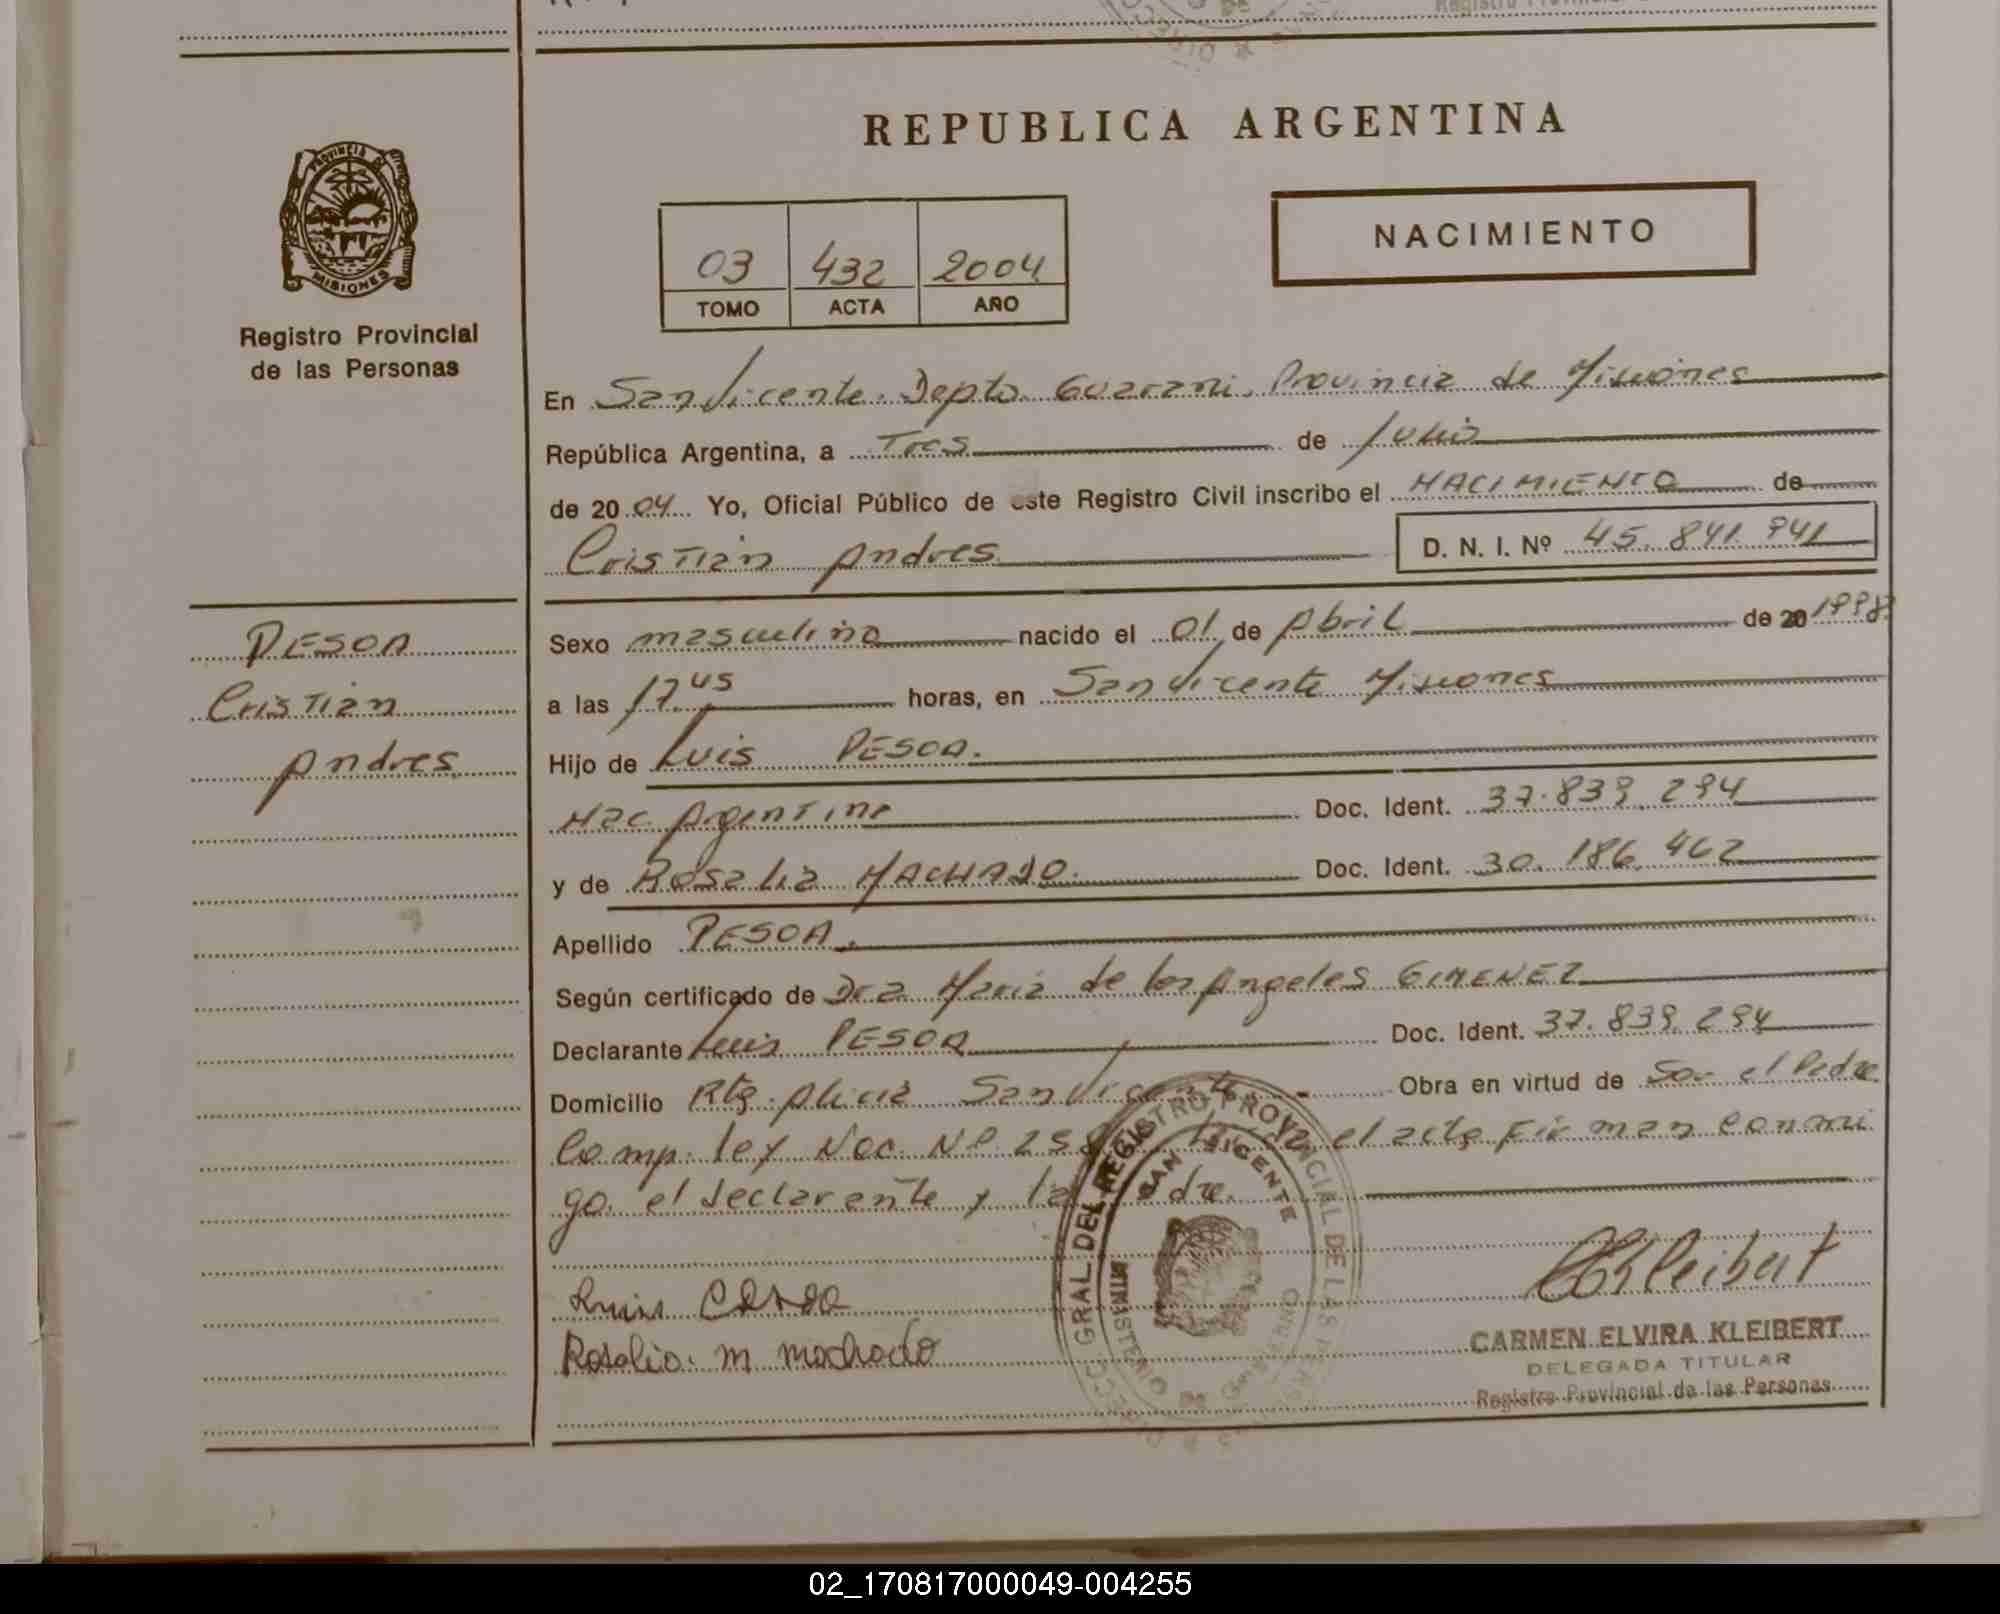 REPUBLICA ARGENTINA
PROVINCIA DE
MISIONES
Registro Provincial
de las Personas
03 432 2004
TOMO ACTA AÑO
NACIMIENTO
En San Vicente. Depto. Guarani. Provincia de Misiones
República Argentina, a Tres de Julio
de 2004 Yo, Oficial Público de este Registro Civil inscribo el NACIMIENTO de
Cristian Andres D. N. I. Nº 45.841.941
PESOA
Cristian
Andres
Sexo masculino nacido el 01 de Abril de 20 1998
a las 17.45 horas, en San Vicente Misiones
Hijo de Luis PESOA.
Nac. Argentina Doc. Ident. 37.839.294
y de Rosalia MACHADO. Doc. Ident. 30.186.462
Apellido PESOA.
Según certificado de Dra. Maria de los Angeles GIMENEZ
Declarante Luis PESOA Doc. Ident. 37.839.294
Domicilio Rta. Alicia San Vicente Obra en virtud de Ser el Padre
Comp. ley Nac. Nº 255 el acta firman conmi
go. el declarante y la madre.
Luis
Rosalia. M machado
GRAL. DEL REGISTRO PROVINCIAL DE LAS PERSONAS
SAN VICENTE
MINISTERIO DE GOBIERNO
CARMEN ELVIRA KLEIBERT
DELEGADA TITULAR
Registro Provincial de las Personas
02_170817000049-004255